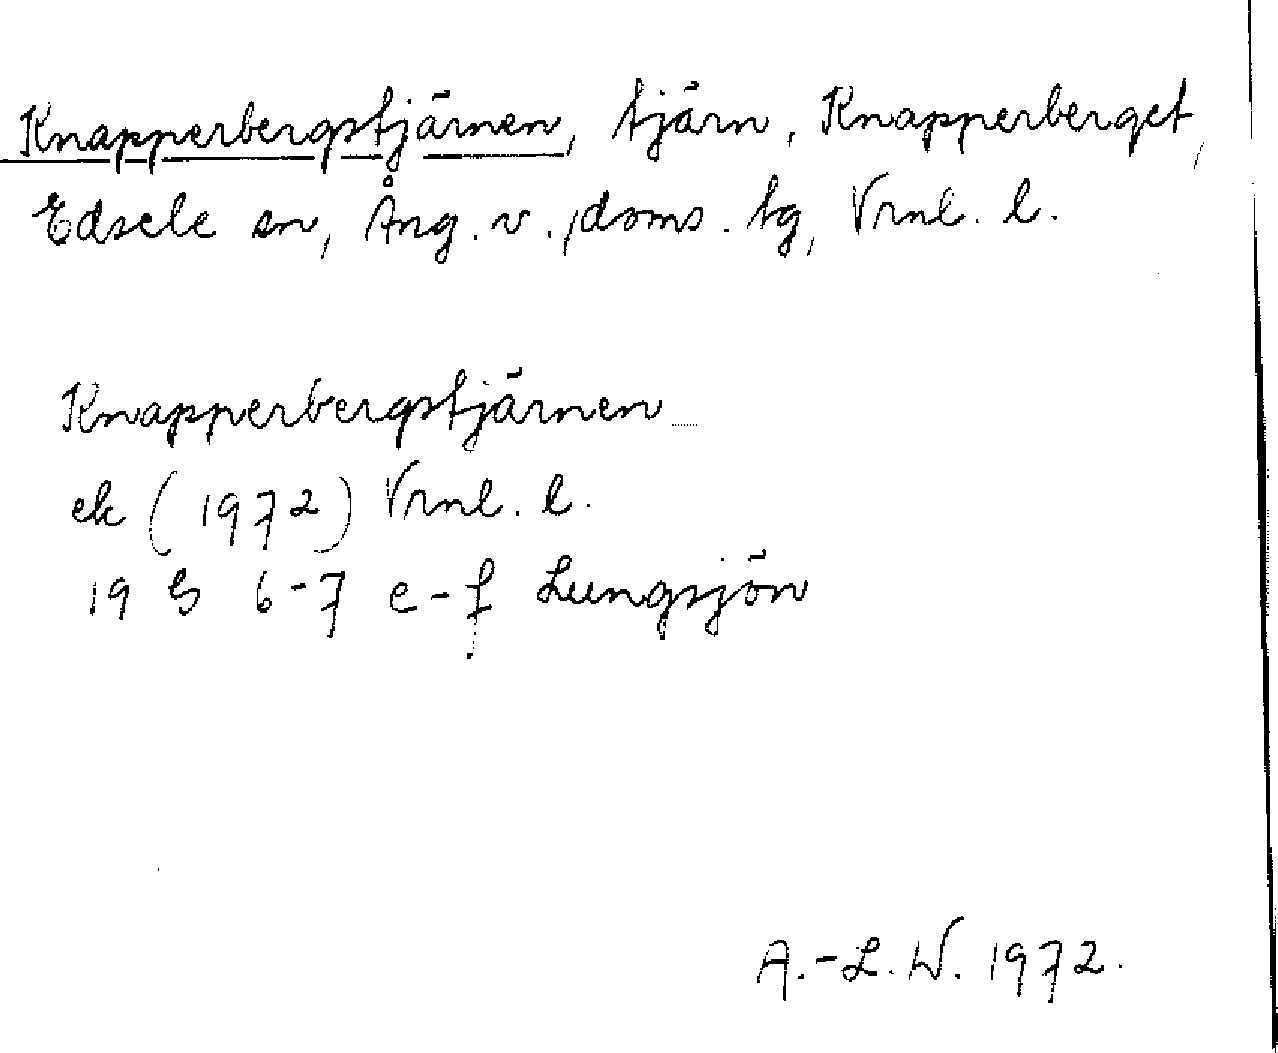 Knapperbergstjärnen, tjärn, Knapperberget,
Edsele sn, Ång. v. doms. tg, Vrnl. l.
Knapperbergstjärnen
ek (1972) Vrnl. l.
19 G 6-7 e-f Lungsjön
A.-L. W. 1972.